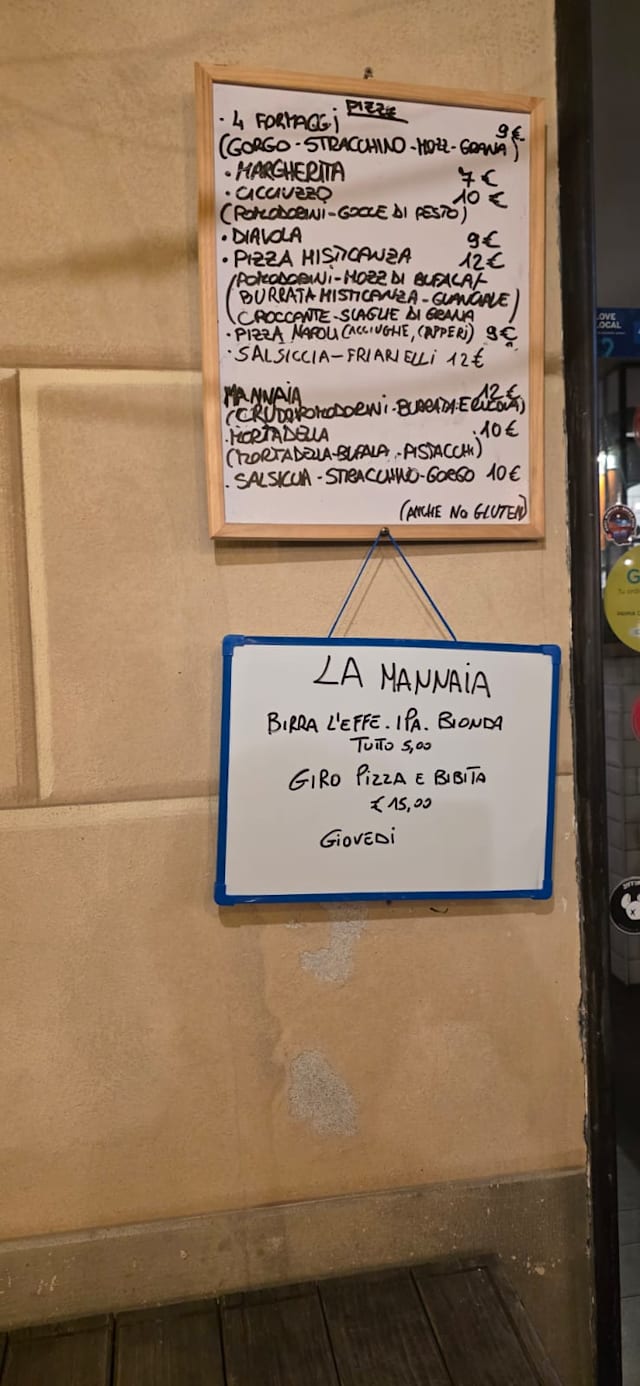 PIZZE
· 4 FORMAGGI 9€
(GORGO - STRACCHINO - MOZZ - GRANA)
· MARGHERITA 7€
· CICCIUZZO 10€
(POMODORINI - GOCCE DI PESTO)
· DIAVOLA 9€
· PIZZA MISTICANZA 12€
(POMODORINI - MOZZ DI BUFALA/
BURRATA MISTICANZA - GUANCIALE
CROCCANTE - SCAGLIE DI GRANA)
· PIZZA NAPOLI (ACCIUGHE, CAPPERI) 9€
· SALSICCIA - FRIARIELLI 12€
MANNAIA 12€
(CRUDO POMODORINI - BURRATA E RUCOLA)
· MORTADELLA 10€
(MORTADELLA - BUFALA - PISTACCHI)
· SALSICCIA - STRACCHINO - GORGO 10€
(ANCHE NO GLUTEN)
LA MANNAIA
BIRRA L'EFFE. IPA. BIONDA
TUTTO 5,00
GIRO PIZZA E BIBITA
€ 15,00
GIOVEDì
LOVE
LOCAL
G